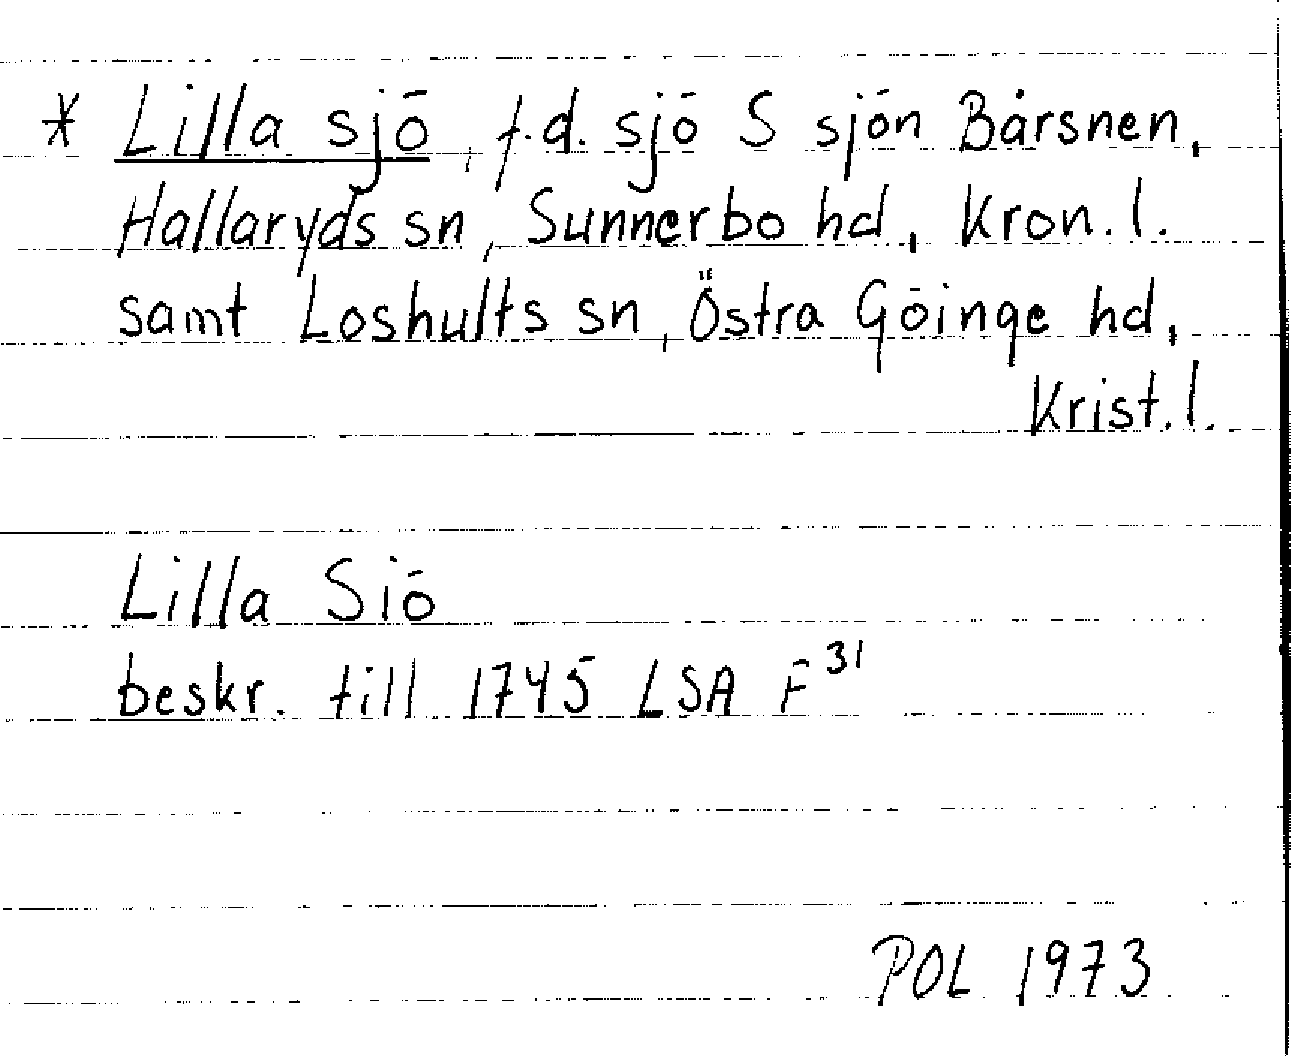 * Lilla sjö, f.d. sjö S sjön Bårsnen,
Hallaryds sn, Sunnerbo hd, Kron. l.
samt Loshults sn, Östra Göinge hd,
Krist. l.
Lilla Siö
beskr. till 1745 LSA F³¹
POL 1973